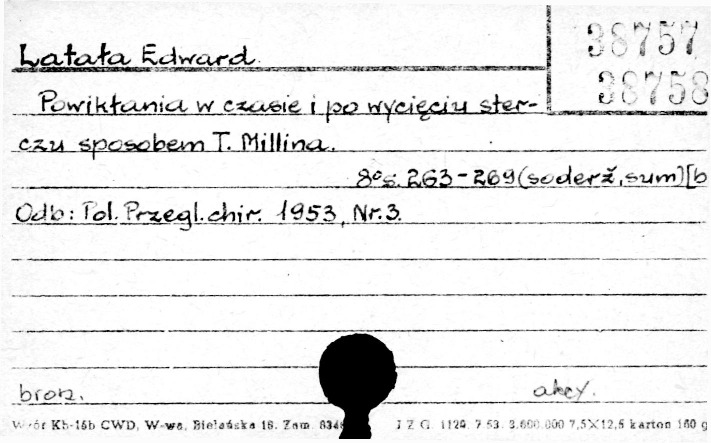 Latała Edward.
38757
38758
Powikłania w czasie i po wycięciu ster-
czu sposobem T. Millina.
8° s. 263-269 (soderž, sum) [b
Odb: Pol. Przegl. chir. 1953, Nr. 3.
brosz.
akcy.
Wzór Kb-15b CWD, W-wa, Bielańska 18. Zam.
J Z G. 1129. 7.53. 3.600.000 7,5X12,5 karton 160 g